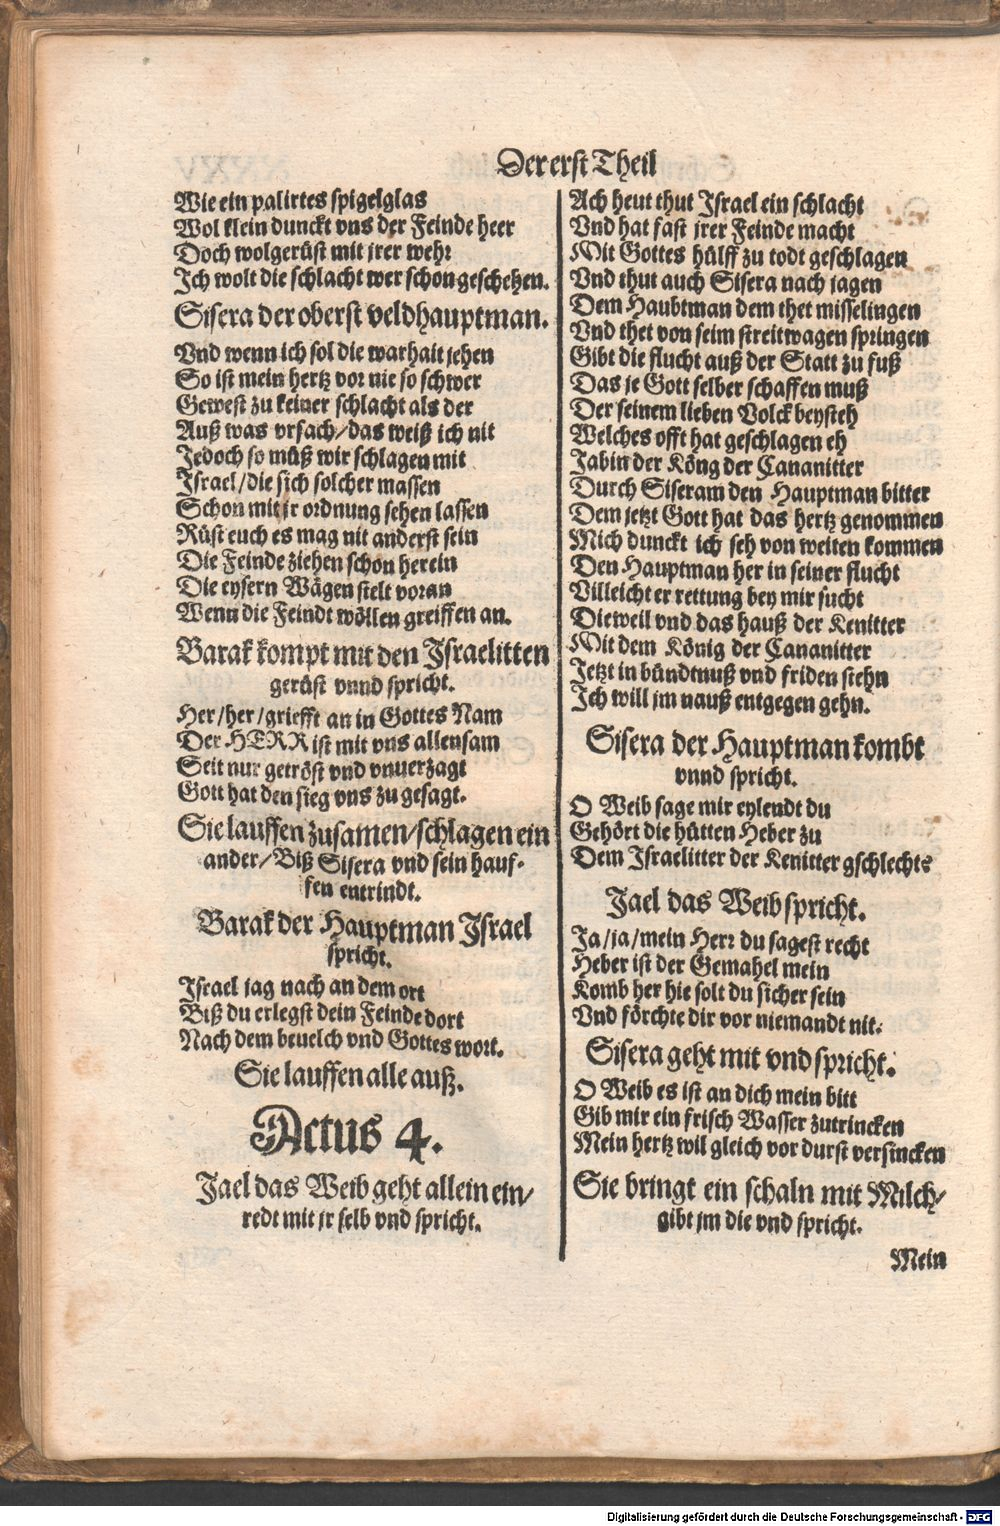 Der erst Theil
Wie ein palirtes spigelglas
Wol klein dunckt vns der Feinde heer
Doch wolgerüst mit jrer wehr
Ich wolt die schlacht wer schon geschehen.
Sisera der oberst veldhauptman.
Vnd wenn ich sol die warhait jehen
So ist mein hertz vor nie so schwer
Gewest zu keiner schlacht als der
Auß was vrsach/das weiß ich nit
Jedoch so müß wir schlagen mit
Israel/die sich solcher massen
Schon mit jr ordnung sehen lassen
Rüst euch es mag nit anderst sein
Die Feinde ziehen schon herein
Die eysern Wägen stelt voran
Wenn die Feindt wöllen greiffen an.
Barak kompt mit den Israelitten
gerüst vnnd spricht.
Her/her/griefft an in Gottes Nam
Der HERR ist mit vns allensam
Seit nur getröst vnd vnuerzagt
Gott hat den sieg vns zu gesagt.
Sie lauffen zusamen/schlagen ein
ander/Biß Sisera vnd sein hauf-
fen entrindt.
Barak der Hauptman Israel
spricht.
Israel jag nach an dem ort
Biß du erlegst dein Feinde dort
Nach dem beuelch vnd Gottes wort.
Sie lauffen alle auß.
Actus 4.
Jael das Weib geht allein ein/
redt mit jr selb vnd spricht.
Ach heut thut Israel ein schlacht
Vnd hat fast jrer Feinde macht
Mit Gottes hülff zu todt geschlagen
Vnd thut auch Sisera nach jagen
Dem Haubtman dem thet misselingen
Vnd thet von seim streitwagen springen
Gibt die flucht auß der Statt zu fuß
Das je Gott selber schaffen muß
Der seinem lieben Volck beysteh
Welches offt hat geschlagen eh
Jabin der Köng der Cananitter
Durch Siseram den Hauptman bitter
Dem jetzt Gott hat das hertz genommen
Mich dunckt ich seh von weiten kommen
Den Hauptman her in seiner flucht
Villeicht er rettung bey mir sucht
Dieweil vnd das hauß der Kenitter
Mit dem König der Cananitter
Jetzt in bündtnuß vnd friden stehn
Ich will jm nauß entgegen gehn.
Sisera der Hauptman kombt
vnnd spricht.
O Weib sage mir eylendt du
Gehört die hütten Heber zu
Dem Israelitter der Kenitter gschlechts
Jael das Weib spricht.
Ja/ja/mein Herr du sagest recht
Heber ist der Gemahel mein
Komb her hie solt du sicher sein
Vnd förchte dir vor niemandt nit.
Sisera geht mit vnd spricht.
O Weib es ist an dich mein bitt
Gib mir ein frisch Wasser zutrincken
Mein hertz wil gleich vor durst versincken
Sie bringt ein schaln mit Milch/
gibt jm die vnd spricht.
Mein
Digitalisierung gefördert durch die Deutsche Forschungsgemeinschaft - DFG